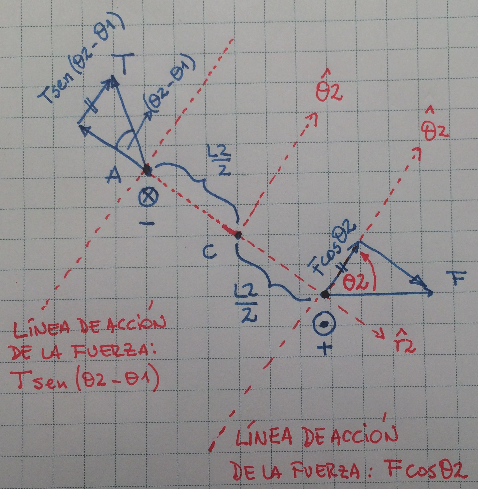 Tsen(θ2-θ1)
T
(θ2-θ1)
θ̂2
θ̂2
L2/2
A
⊗
-
C
Fcosθ2
θ2
F
L2/2
⊙
+
r̂2
LÍNEA DE ACCIÓN
DE LA FUERZA:
Tsen(θ2-θ1)
LÍNEA DE ACCIÓN
DE LA FUERZA: Fcosθ2